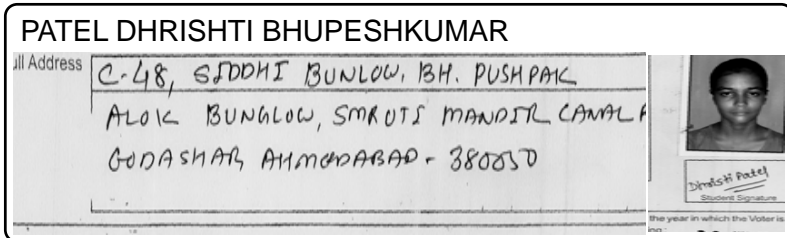 PATEL DHRISHTI BHUPESHKUMAR
ull Address
C-48, SIDDHI BUNLOW, BH. PUSHPAK
ALOK BUNGLOW, SMRUTI MANDIR CANAL
GODASHAR AHMEDABAD - 380050
Dhristi Patel
Student Signature
the year in which the Voter is